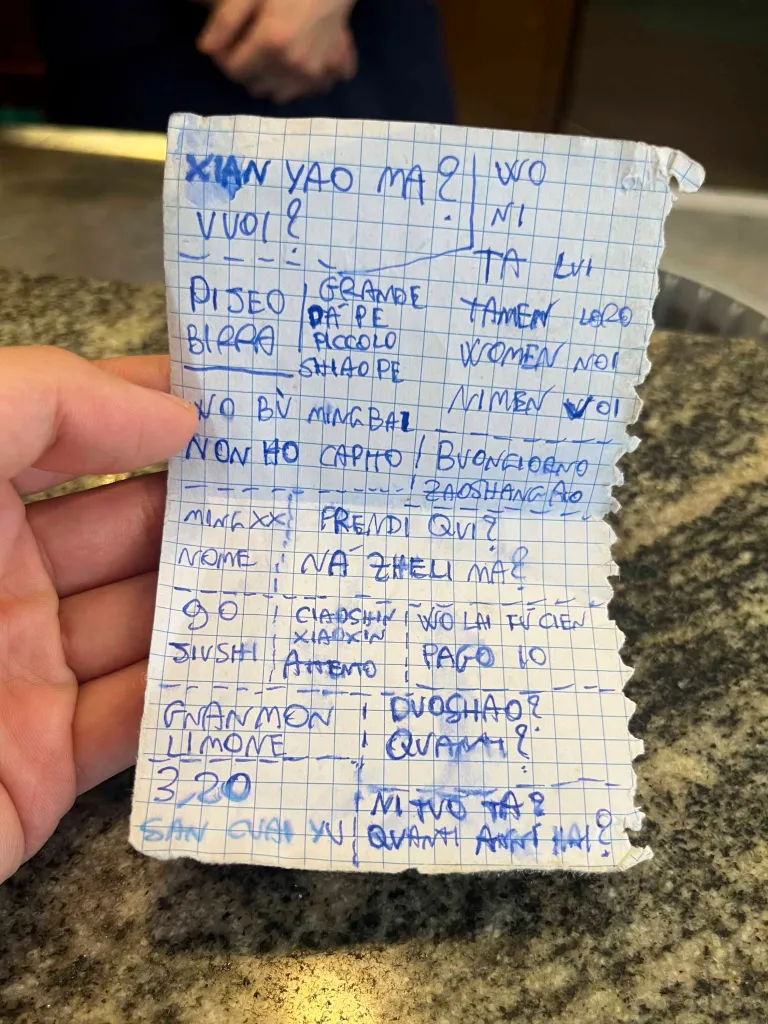 XIAN YAO MA?
VVOI?
WO
NI
TA LUI
TAMEN LORO
WOMEN NOI
NIMEN VOI
PIJEO
BIRRA
GRANDE
DÁ PE
PICCOLO
SHIAO PE
WO BÙ MINGBAI
NON HO CAPITO
BUONGIORNO
ZAOSHANGAO
MING XX
NOME
PRENDI QUI?
NÁ ZHELI MA?
90
JIUSHI
CIAOSHIN
XIAOXIN
ATTENTO
WǑ LAI FÙ CIEN
PAGO IO
GNANMON
LIMONE
DUOSHAO?
QUANTI?
3,20
SAN CUAI YU
NI TUO TA?
QUANTI ANNI HAI?